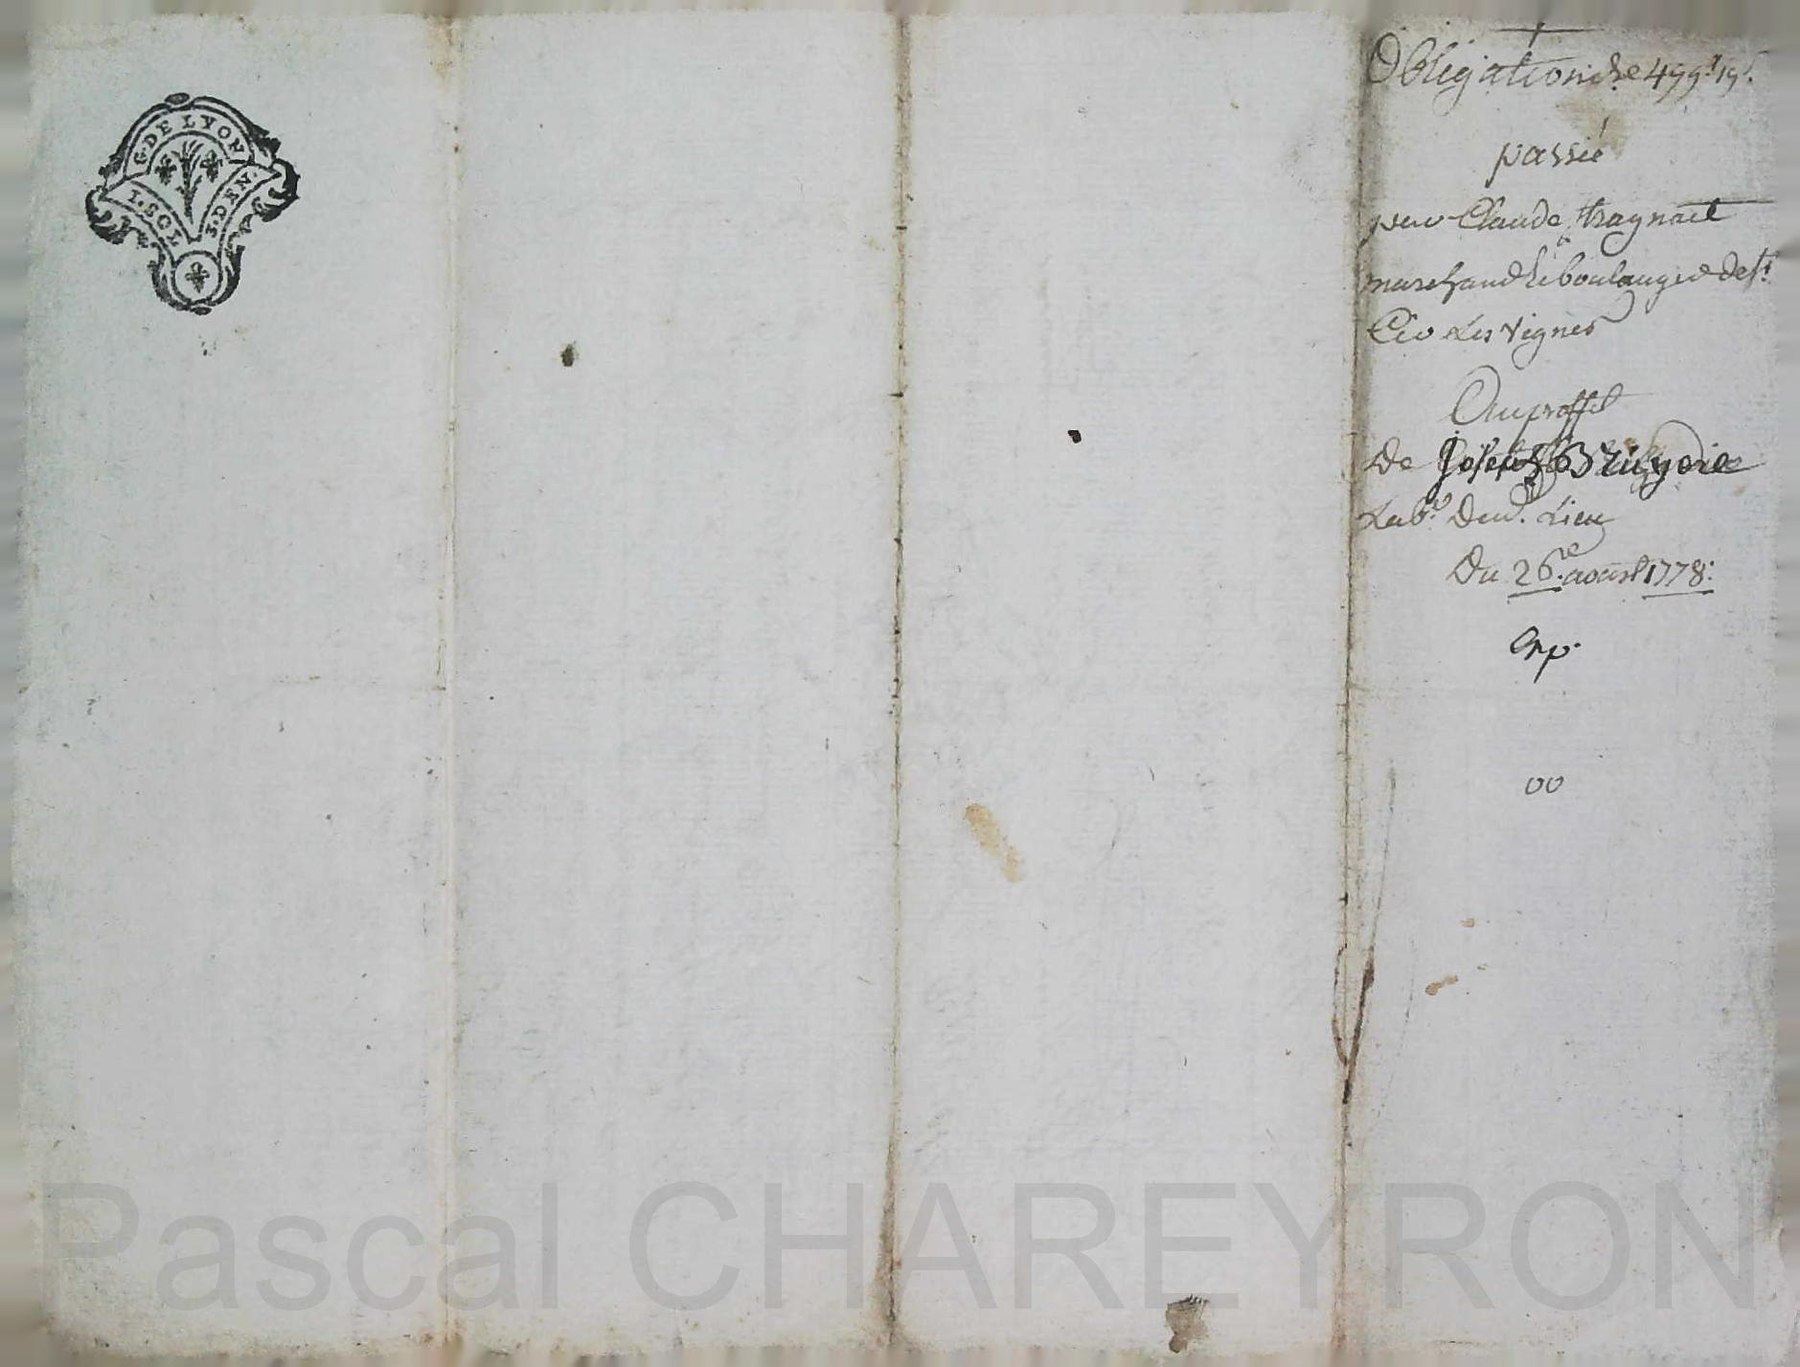 G. DE LYON
1. SOL 3. DEN.
Obligation de 499ᵗ 19ˢ
passée
par Claude tragnact
marchand & boulanger de Sᵗ
Cir Les Vignes
Au proffit
De Joseph Bruyere
Labʳ Dud. Lieu
Du 26ᵉ. aoust 1778.
Exp.
00
Pascal CHAREYRON